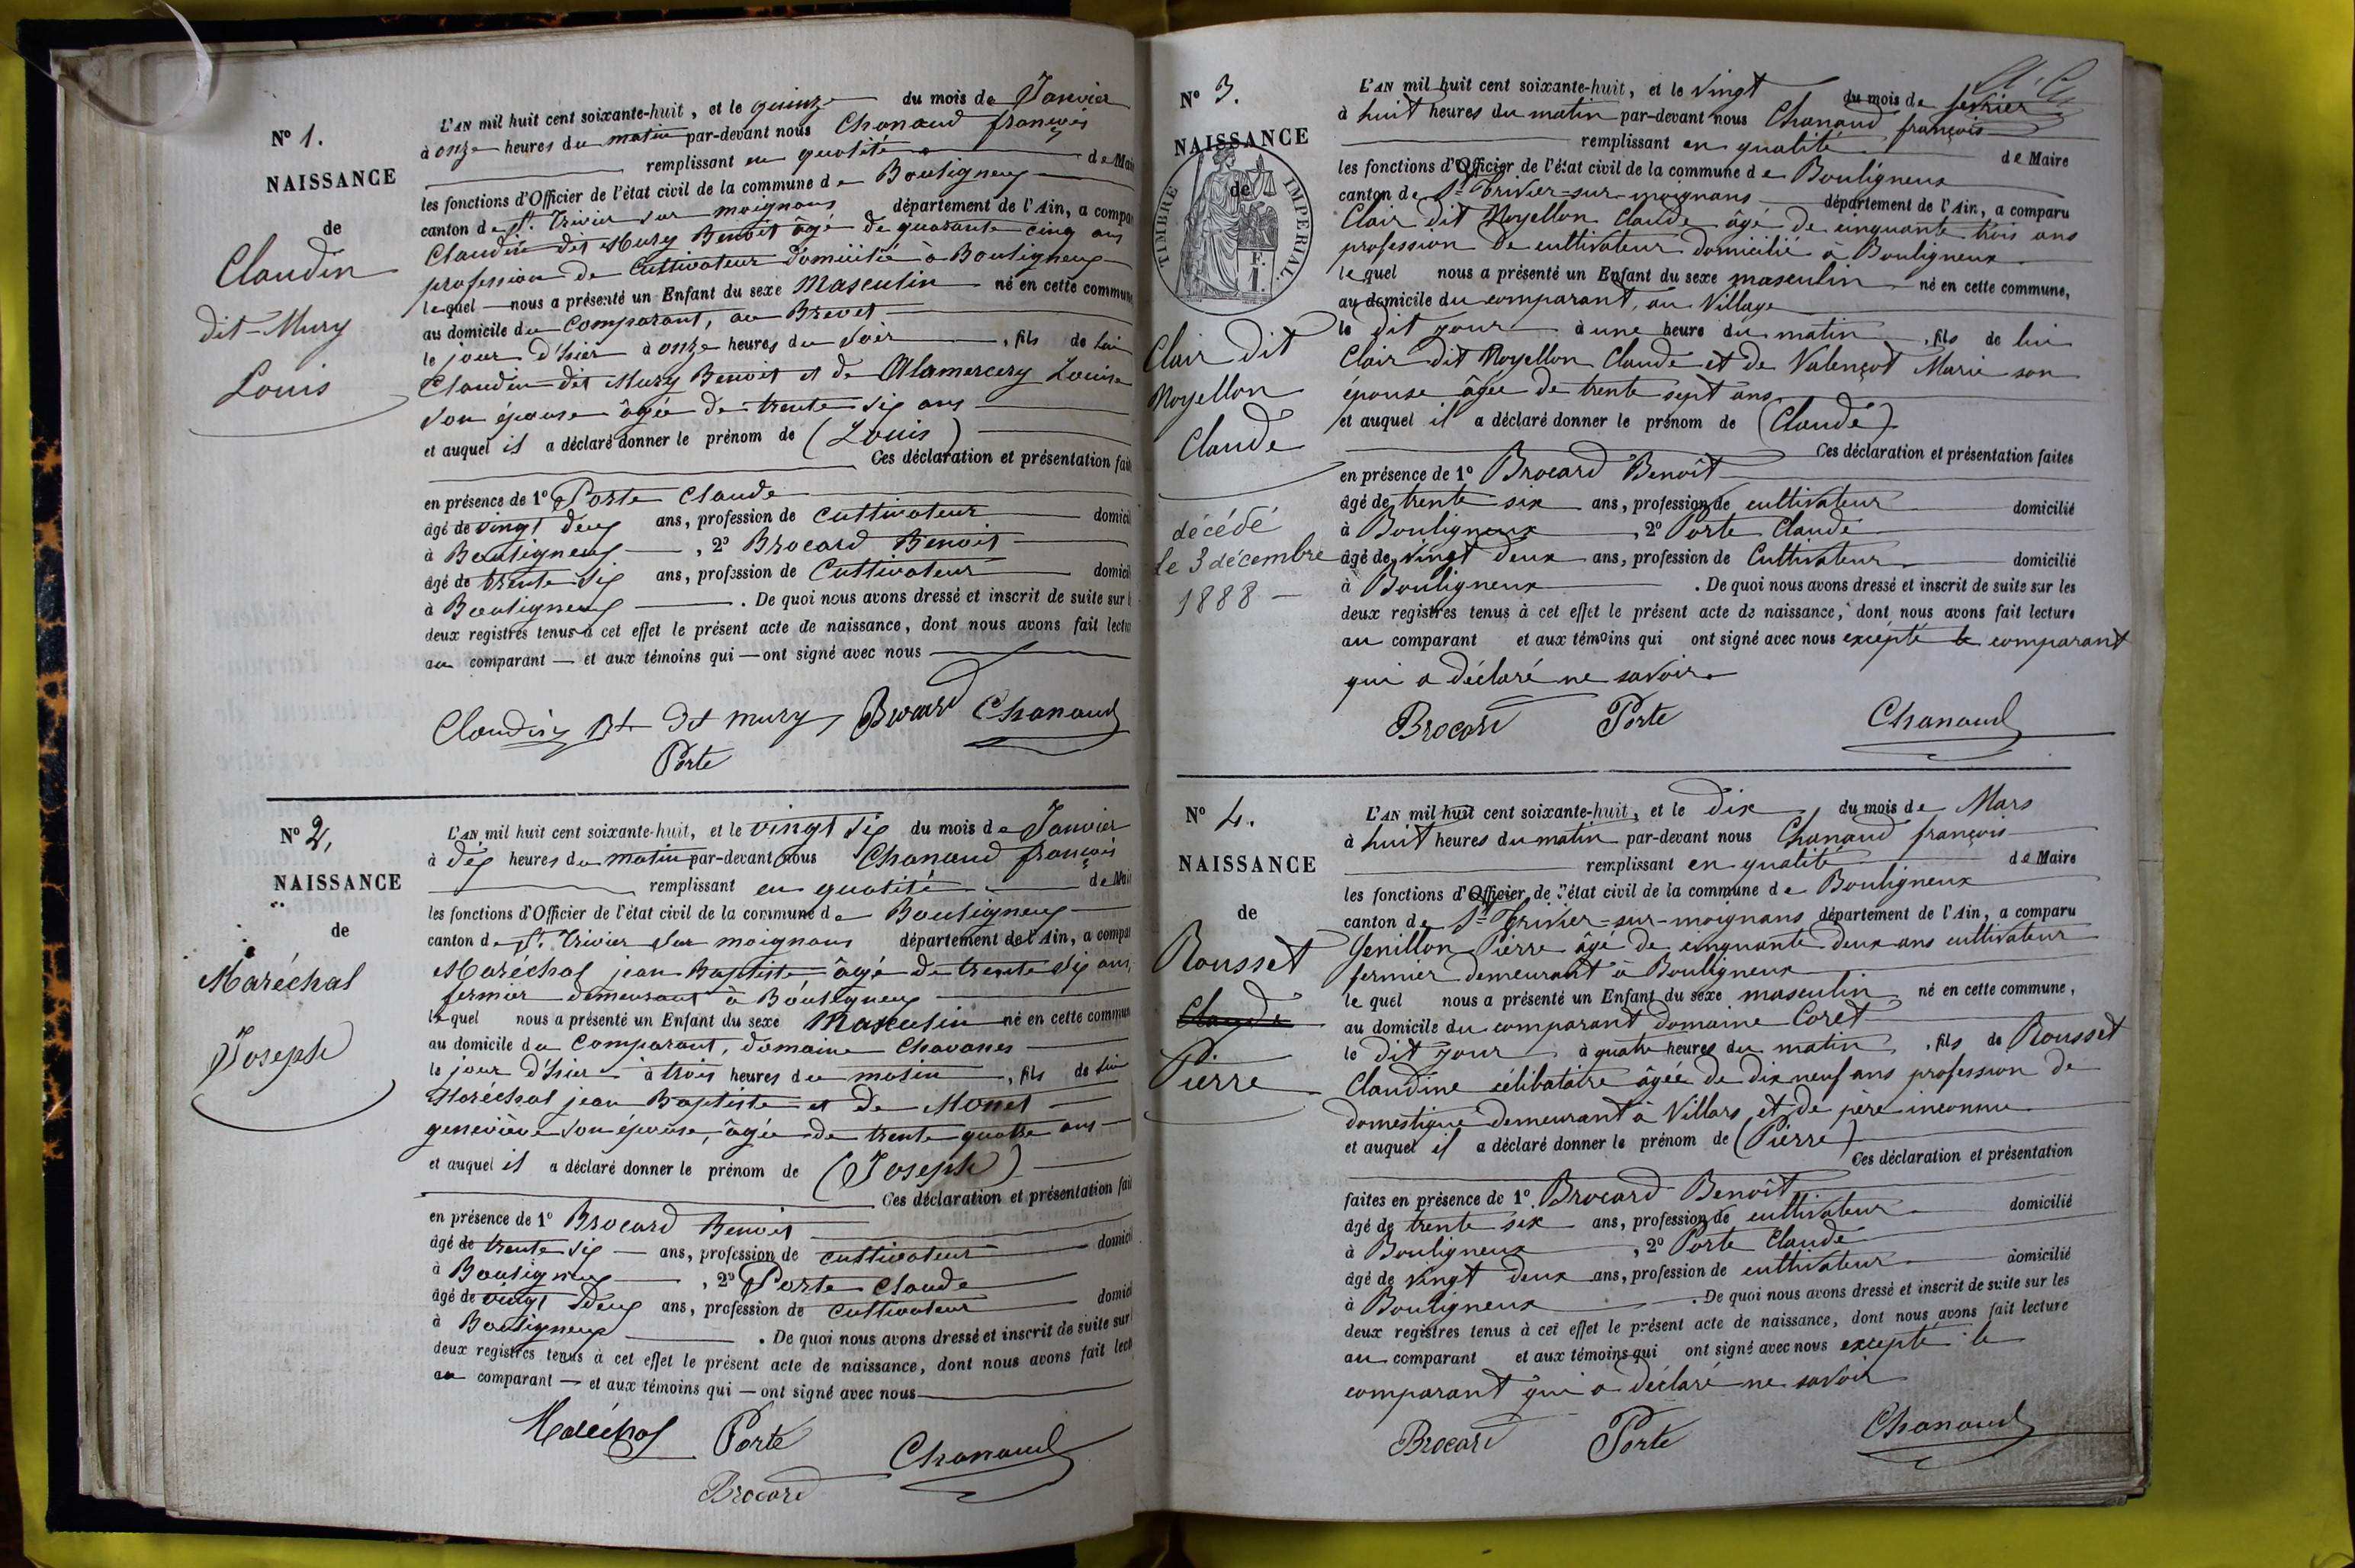 N° 1.
NAISSANCE
de
Claudin
dit Mury
Louis
L'AN mil huit cent soixante-huit, et le quinze du mois de Janvier
à onze heures du matin par-devant nous Chanaud françois
remplissant en qualité de Mai
les fonctions d'Officier de l'état civil de la commune de Bouligneux
canton de St. Trivier sur moignans département de l'Ain, a compa
Claudin dit Mury Benoit âgé de quarante cinq ans
profession de Cultivateur domicilié à Bouligneux
lequel nous a présenté un Enfant du sexe Masculin né en cette commune
au domicile du Comparant, au Brevet
le jour d'hier à onze heures du soir, fils de lui
Claudin dit Mury Benoit et de Alamercery Louise
son épouse âgée de trente six ans
et auquel il a déclaré donner le prénom de (Louis)
Ces déclaration et présentation fait
en présence de 1° Porte Claude
âgé de vingt deux ans, profession de Cultivateur domicil
à Bouligneux, 2° Brocard Benoit
âgé de trente six ans, profession de Cultivateur domicil
à Bouligneux. De quoi nous avons dressé et inscrit de suite sur l
deux registres tenus à cet effet le présent acte de naissance, dont nous avons fait lectur
au comparant — et aux témoins qui — ont signé avec nous
Claudin Bt dt mury Brocard Chanaud
Porte
N° 2,
NAISSANCE
de
Maréchal
Joseph
L'AN mil huit cent soixante-huit, et le vingt six du mois de Janvier
à dix heures du matin par-devant nous Chanaud françois
remplissant en qualité de Mai
les fonctions d'Officier de l'état civil de la commune de Bouligneux
canton de St. Trivier sur moignans département de l'Ain, a compa
Maréchal jean Baptiste âgé de trente six ans,
fermier demeurant à Bouligneux
lequel nous a présenté un Enfant du sexe Masculin né en cette commun
au domicile du Comparant, domaine Chavanes
le jour d'hier à trois heures du matin, fils de lui
Maréchal jean Baptiste et de Monet
geneviève son épouse, âgée de trente quatre ans
et auquel il a déclaré donner le prénom de (Joseph)
Ces déclaration et présentation fait
en présence de 1° Brocard Benoit
âgé de trente six — ans, profession de cultivateur domicil
à Bouligneux, 2° Porte Claude
âgé de vingt deux ans, profession de cultivateur domicil
à Bouligneux. De quoi nous avons dressé et inscrit de suite sur l
deux registres tenus à cet effet le présent acte de naissance, dont nous avons fait lect
au comparant — et aux témoins qui — ont signé avec nous
Maréchal Porte Chanaud
Brocard
N° 3.
NAISSANCE
de
TIMBRE IMPERIAL
F.
1.
Clair dit
Noyellon
Claude
décédé
le 3 décembre
1888 —
L'AN mil huit cent soixante-huit, et le vingt du mois de février
à huit heures du matin par-devant nous Chanaud françois
remplissant en qualité de Maire
les fonctions d'Officier de l'état civil de la commune de Bouligneux
canton de St Trivier=sur-moignans département de l'Ain, a comparu
Clair dit Noyellon Claude âgé de cinquante trois ans
profession de cultivateur domicilié à Bouligneux
lequel nous a présenté un Enfant du sexe masculin né en cette commune,
au domicile du comparant, au Village
le dit jour à une heure du matin, fils de lui
Clair dit Noyellon Claude et de Valençot Marie son
épouse âgée de trente sept ans
et auquel il a déclaré donner le prénom de (Claude)
Ces déclaration et présentation faites
en présence de 1° Brocard Benoît
âgé de trente six ans, profession de cultivateur domicilié
à Bouligneux, 2° Porte Claude
âgé de vingt deux ans, profession de Cultivateur domicilié
à Bouligneux. De quoi nous avons dressé et inscrit de suite sur les
deux registres tenus à cet effet le présent acte de naissance, dont nous avons fait lecture
au comparant et aux témoins qui ont signé avec nous excepté le comparant
qui a déclaré ne savoir.
Brocard Porte Chanaud
N° 4.
NAISSANCE
de
Rousset
Claude
Pierre
L'AN mil huit cent soixante-huit, et le dix du mois de Mars
à huit heures du matin par-devant nous Chanaud françois
remplissant en qualité de Maire
les fonctions d'Officier de l'état civil de la commune de Bouligneux
canton de St Trivier=sur-moignans département de l'Ain, a comparu
Genillon Pierre âgé de cinquante deux ans cultivateur
fermier demeurant à Bouligneux
lequel nous a présenté un Enfant du sexe masculin né en cette commune,
au domicile du comparant domaine Coret
le dit jour à quatre heures du matin, fils de Rousset
Claudine célibataire âgée de dix neuf ans profession de
domestique demeurant à Villars, et de père inconnu
et auquel il a déclaré donner le prénom de (Pierre)
Ces déclaration et présentation
faites en présence de 1° Brocard Benoît
âgé de trente six ans, profession de cultivateur domicilié
à Bouligneux, 2° Porte Claude
âgé de vingt deux ans, profession de cultivateur domicilié
à Bouligneux. De quoi nous avons dressé et inscrit de suite sur les
deux registres tenus à cet effet le présent acte de naissance, dont nous avons fait lecture
au comparant et aux témoins qui ont signé avec nous excepté le
comparant qui a déclaré ne savoir
Brocard Porte Chanaud